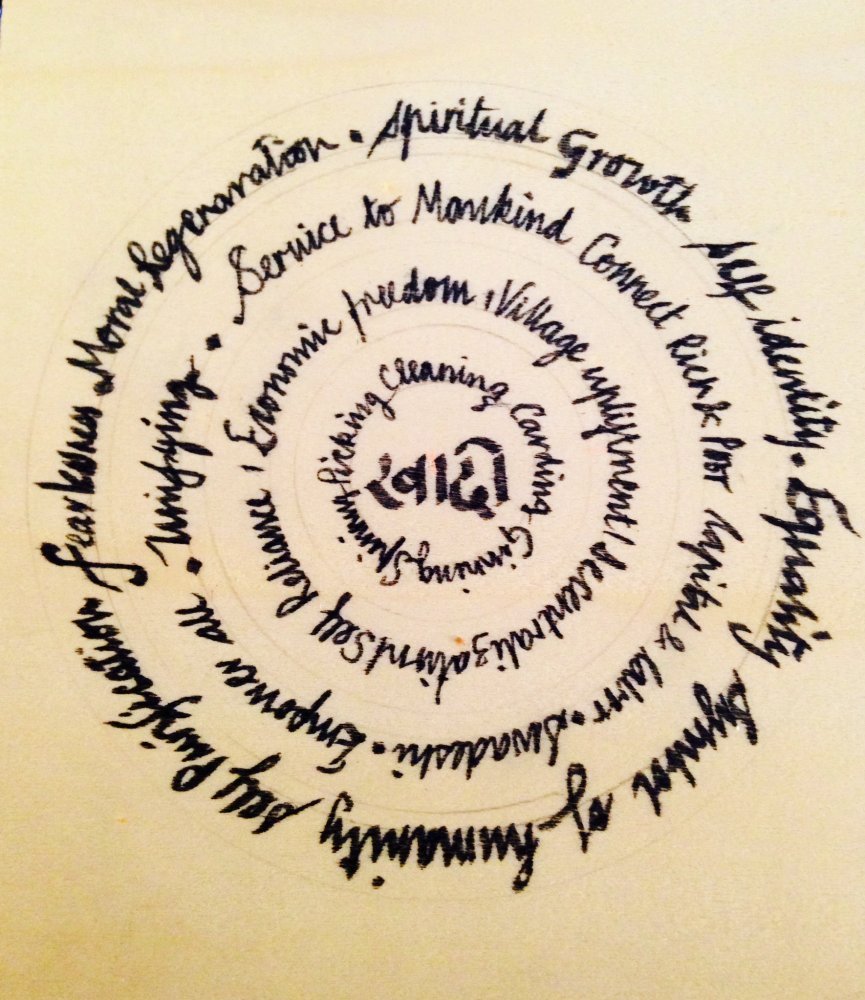 Spiritual Growth self identity • Equality Symbol of humanity self Purification fearlessness • Moral Regeneration •
Service to Mankind Connect Rich & Poor Capital & • Swadeshi • Empower all • Unifying •
Economic freedom, Village upliftment / decentralization / Self Reliance,
Picking Cleaning Carding Ginning Spinning
खादी